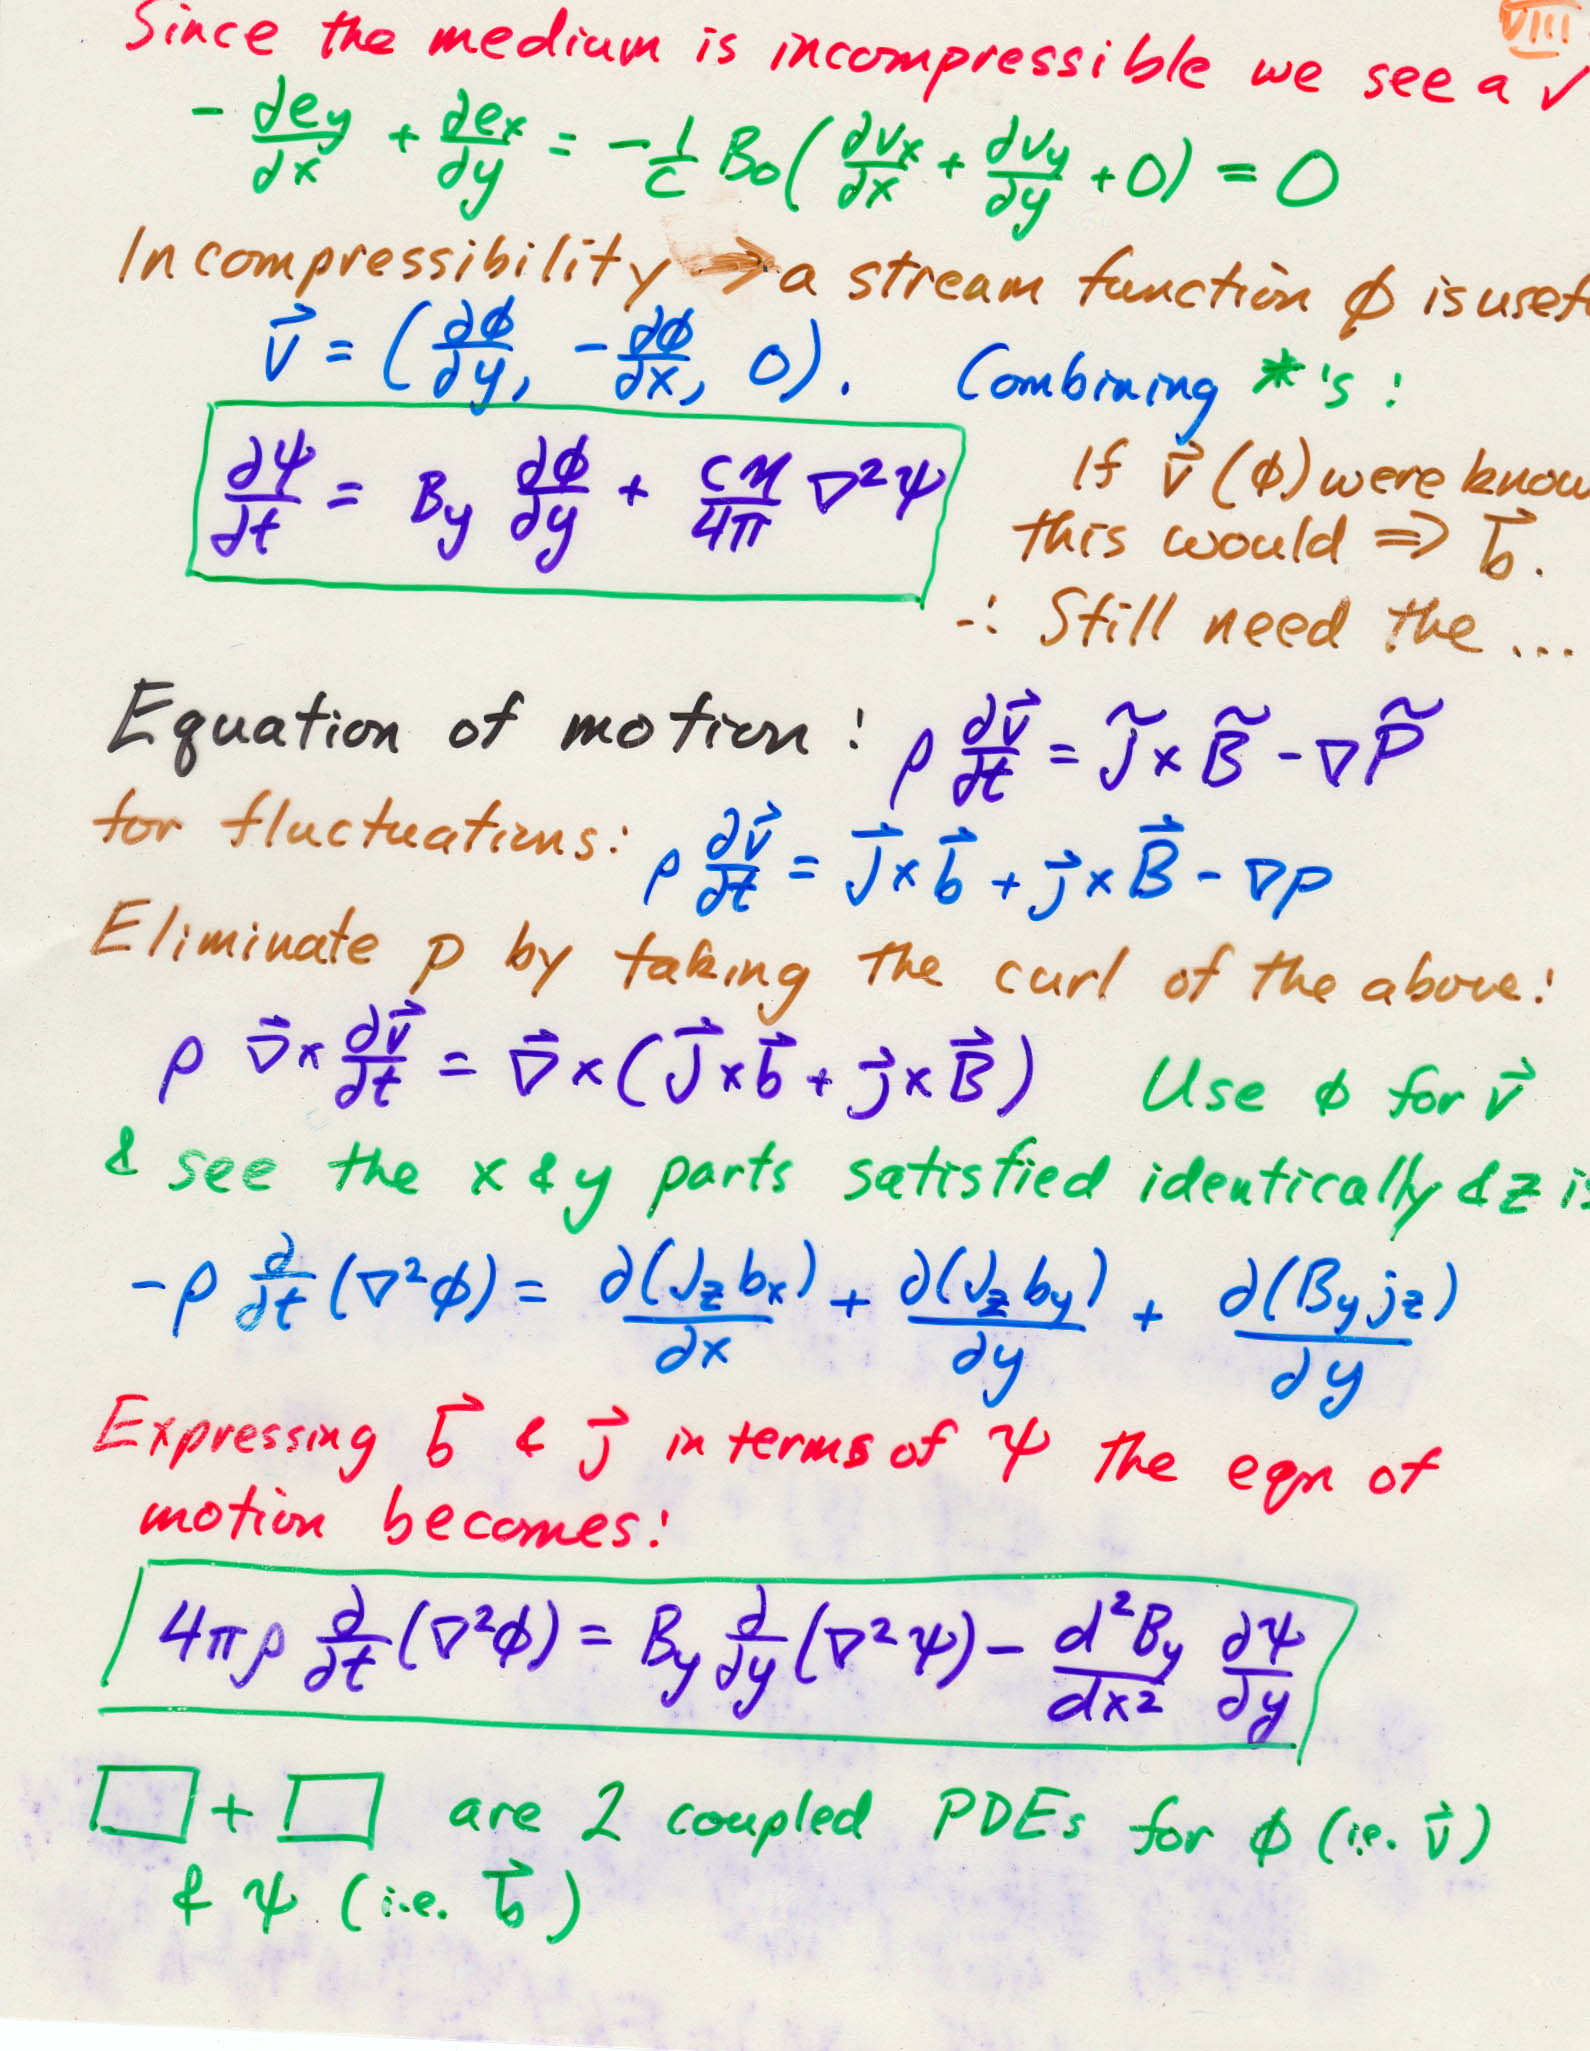 VIII
Since the medium is incompressible we see a ✓
- ∂ey/∂x + ∂ex/∂y = -1/c B₀(∂vx/∂x + ∂vy/∂y + 0) = 0
Incompressibility → a stream function ϕ is usef
v⃗ = (∂ϕ/∂y, -∂ϕ/∂x, 0). Combining *'s:
∂ψ/∂t = By ∂ϕ/∂y + cη/4π ∇²ψ
If v⃗(ϕ) were know
this would ⇒ b⃗.
∴ Still need the ...
Equation of motion: ρ ∂v⃗/∂t = J̃ × B̃ - ∇P̃
for fluctuations: ρ ∂v⃗/∂t = J⃗ × b⃗ + j⃗ × B⃗ - ∇p
Eliminate p by taking the curl of the above:
ρ ∇⃗ × ∂v⃗/∂t = ∇⃗ × (J⃗ × b⃗ + j⃗ × B⃗) Use ϕ for v⃗
& see the x & y parts satisfied identically & z is
-ρ ∂/∂t (∇²ϕ) = ∂(Jz bx)/∂x + ∂(Jz by)/∂y + ∂(By jz)/∂y
Expressing b⃗ & j⃗ in terms of ψ the eqn of
motion becomes:
4πρ ∂/∂t (∇²ϕ) = By ∂/∂y (∇²ψ) - d²By/dx² ∂ψ/∂y
□ + □ are 2 coupled PDEs for ϕ (i.e. v⃗)
& ψ (i.e. b⃗)